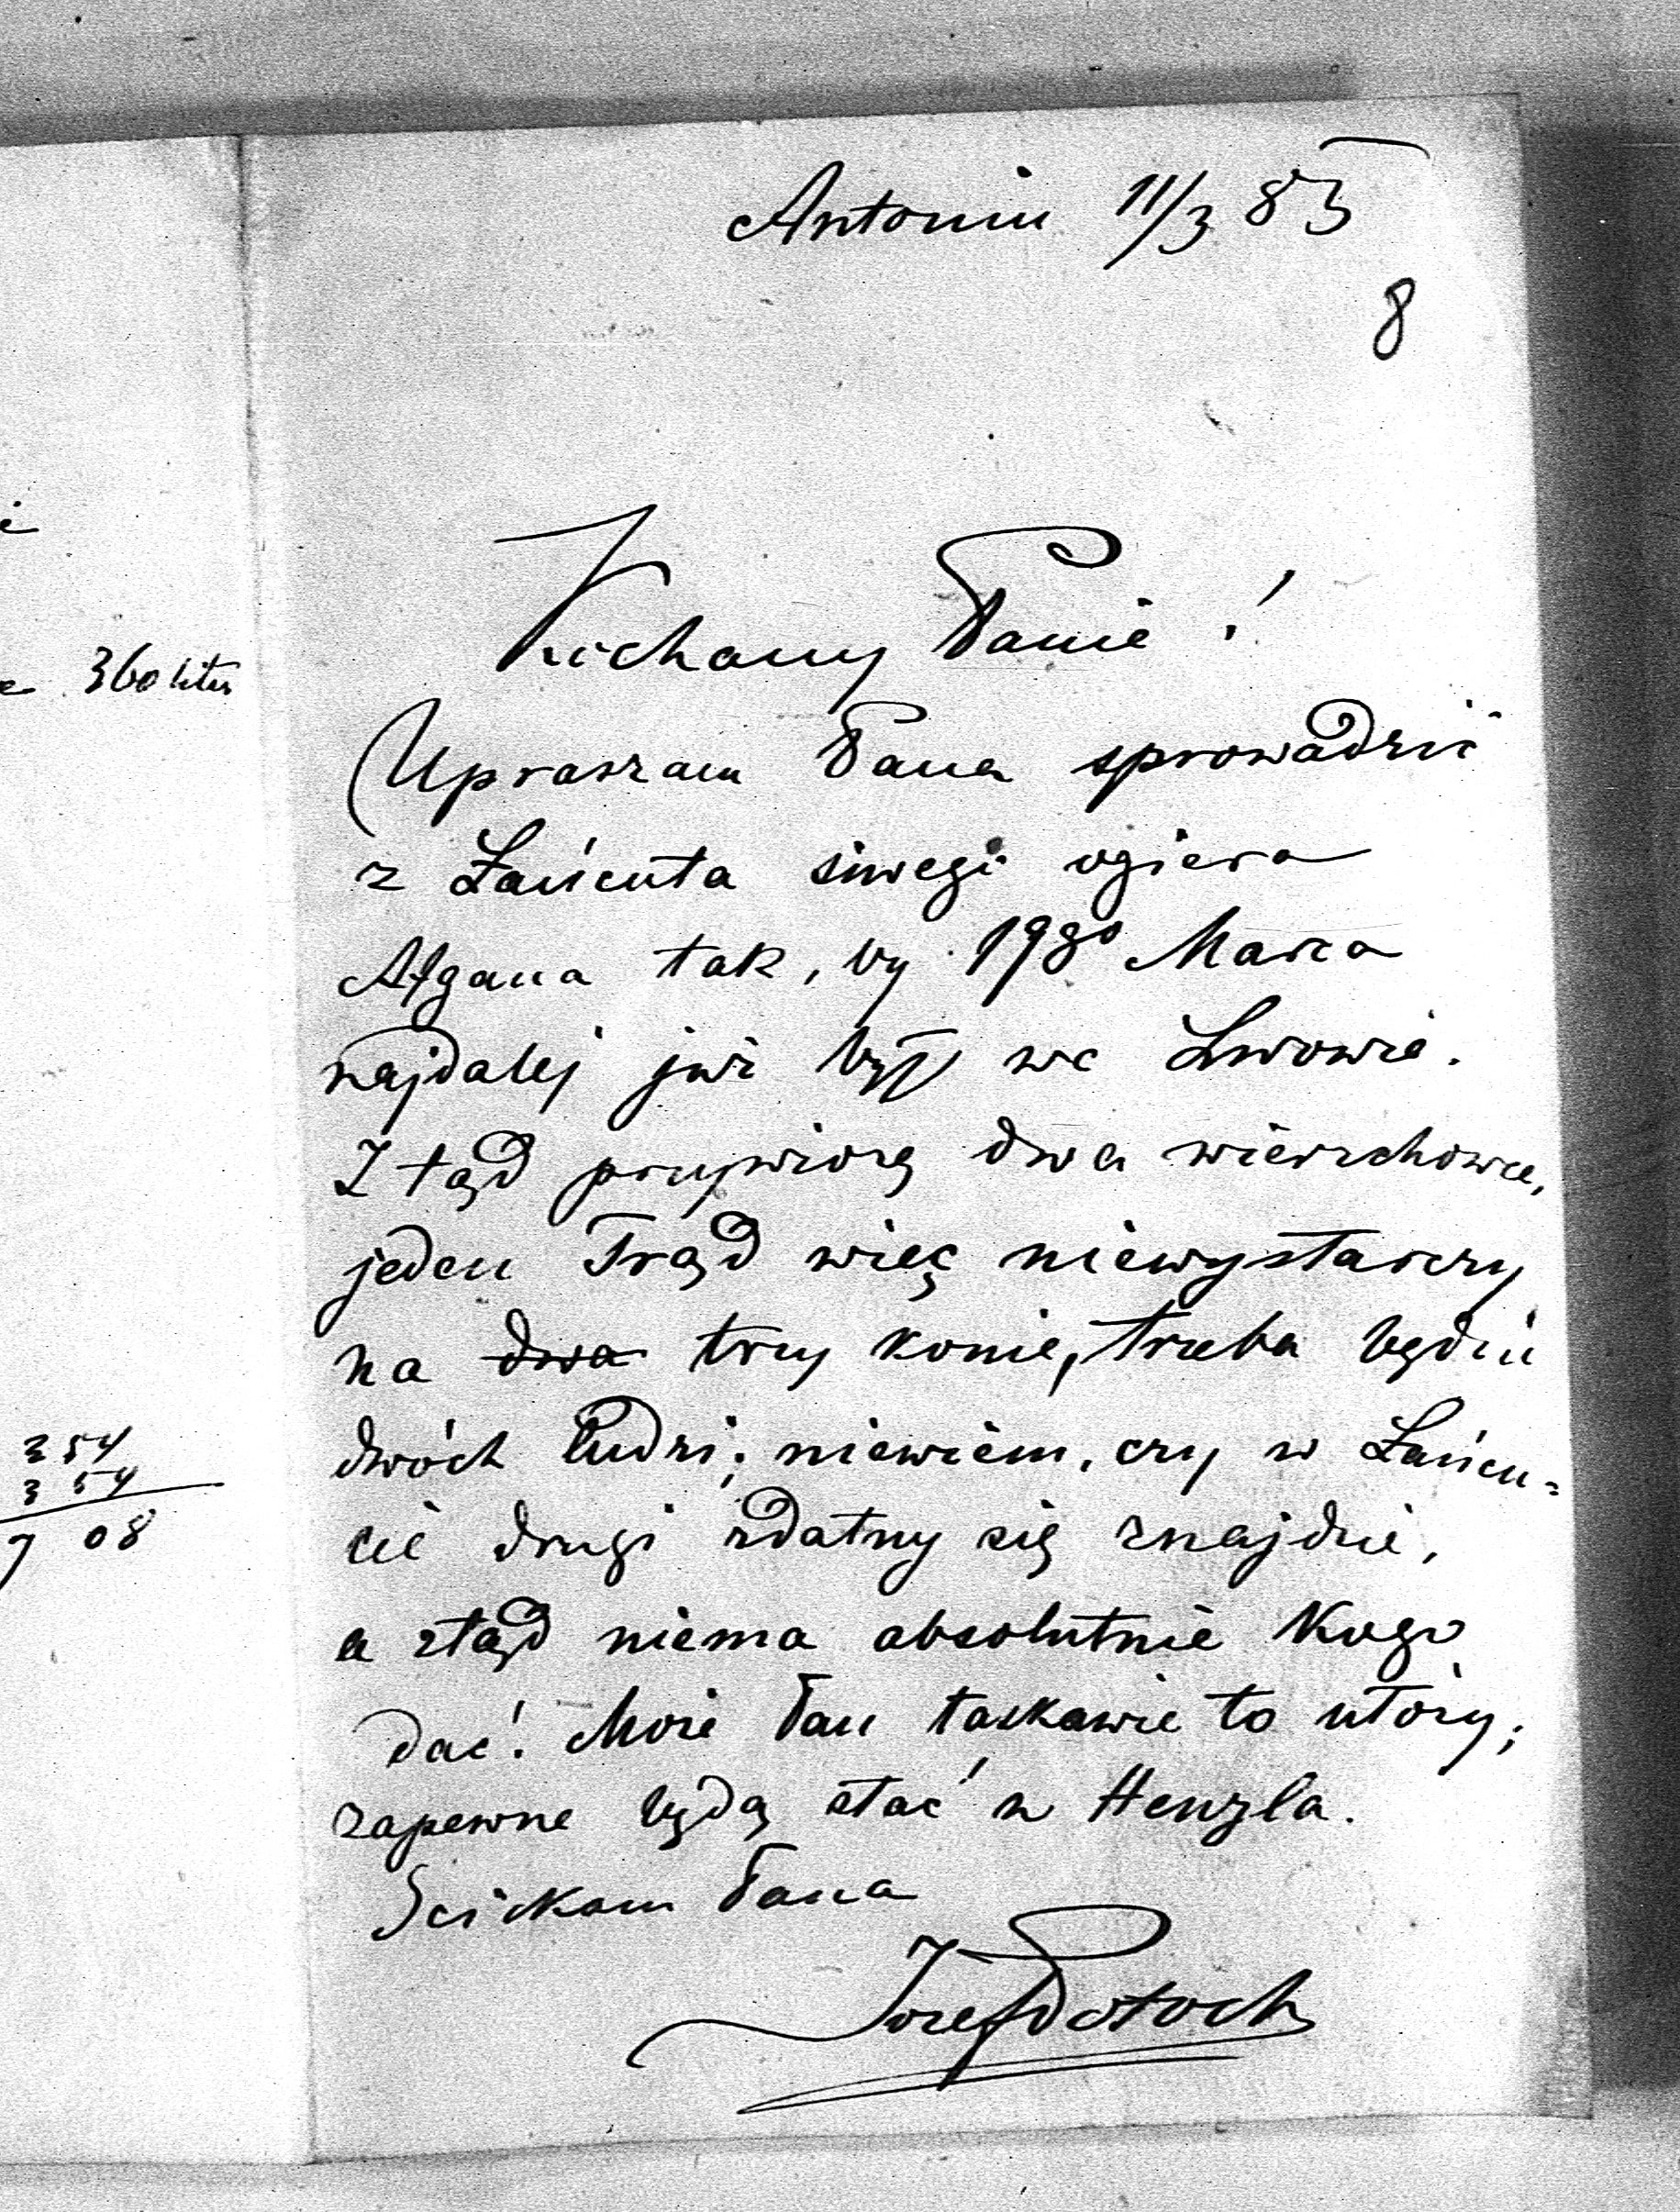 Antonin 11/3 85
8
Kochany Panie!
Upraszam Pana sprowadzić
z Łańcuta siwego ogiera
Afgana tak, by 19go Marca
najdalej już był we Lwowie.
Z tąd przywiozą dwa wierzchowce,
jeden Trąd więc niewystarczy
na dwa trzy konie, trzeba będzie
dwóch ludzi; niewiem, czy w Łańcu=
cie drugi zdatny się znajdzie,
a ztąd niema absolutnie kogo
dać! Może Pan łaskawie to ułoży;
zapewne będą stać u Henzla.
Ścickam Pana
Józef Potocki
360 liter
354
354
7 08